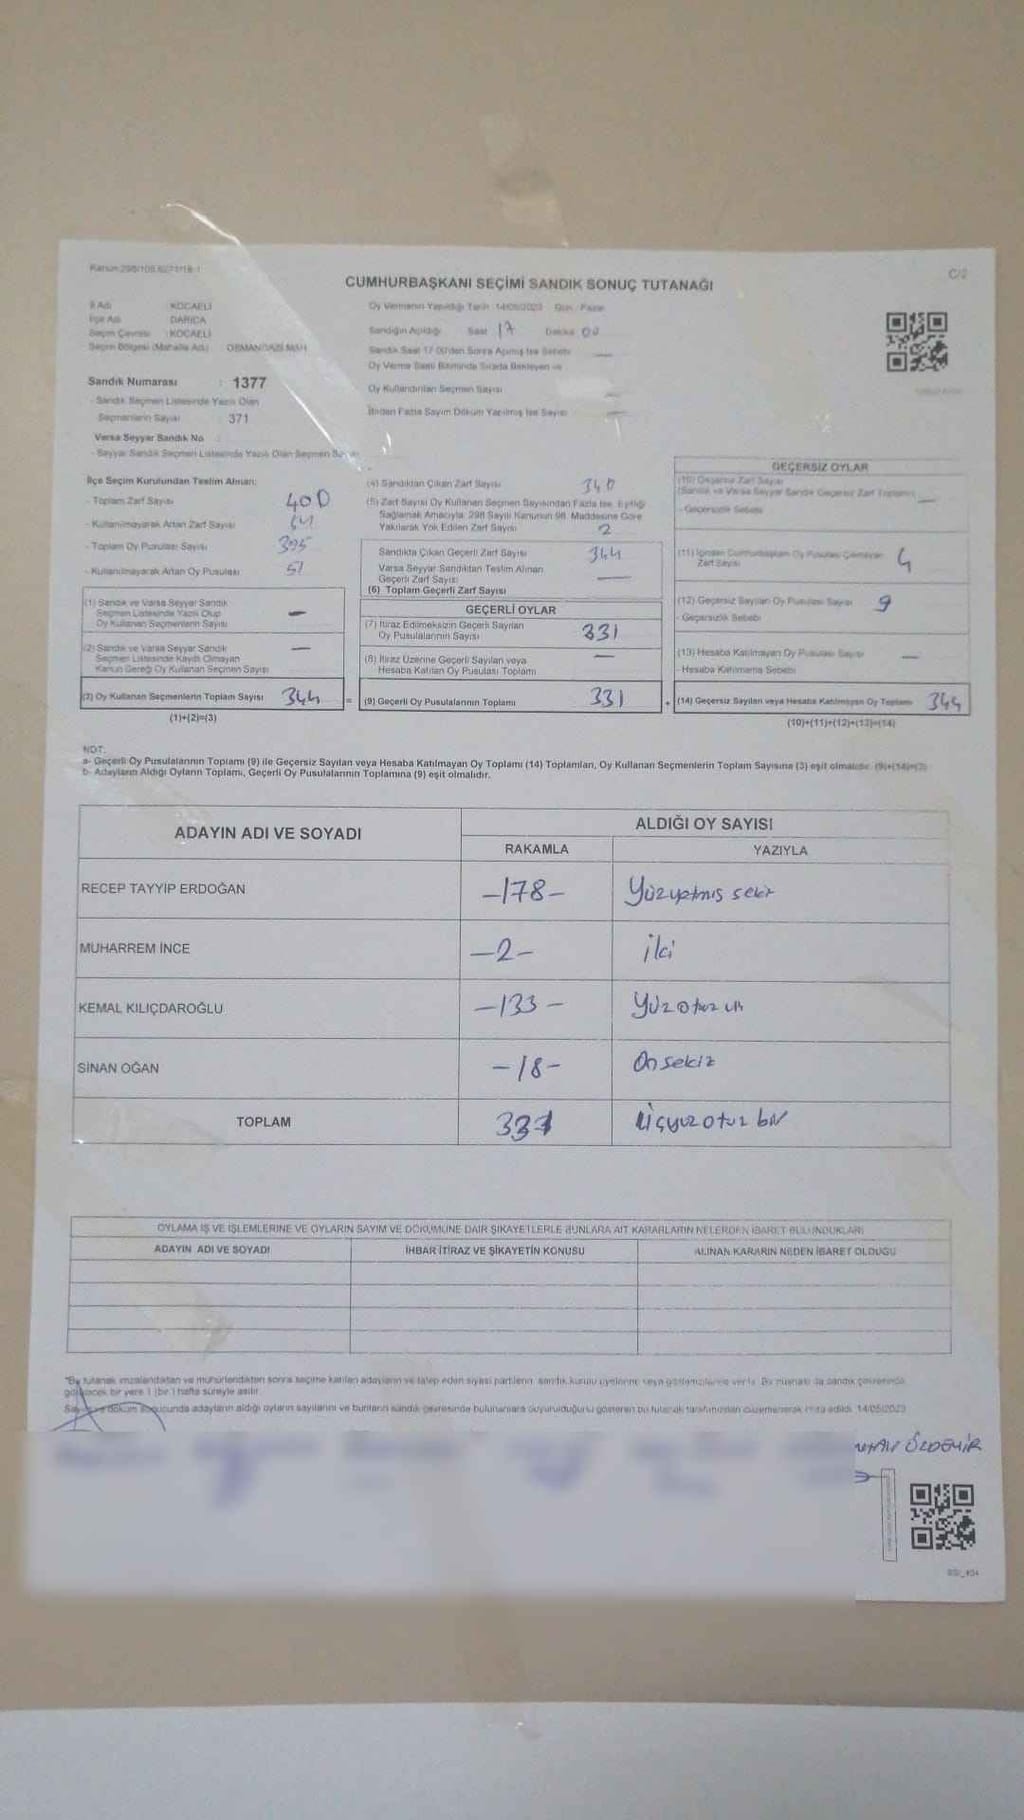 CUMHURBAŞKANI SEÇİMİ SANDIK SONUÇ TUTANAĞI
C/2
İl Adı KOCAELİ
İlçe Adı DARICA
Seçim Çevresi KOCAELİ
Seçim Bölgesi (Mahalle Adı) OSMANGAZİ MAH
Sandık Numarası : 1377
- Sandık Seçmen Listesinde Yazılı Olan
Seçmenlerin Sayısı 371
Varsa Seyyar Sandık No
- Seyyar Sandık Seçmen Listesinde Yazılı Olan Seçmen
Oy Vermenin Yapıldığı Tarih 14/05/2023 Gün : Pazar
Sandığın Açıldığı Saat 17 Dakika 00
Sandık Saat 17.00'den Sonra Açılmış İse Sebebi
Oy Verme Saati Bitiminde Sırada Bekleyen ve
Oy Kullandırılan Seçmen Sayısı
Birden Fazla Sayım Döküm Yapılmış İse Sayısı
İlçe Seçim Kurulundan Teslim Alınan:
- Toplam Zarf Sayısı 400
- Kullanılmayarak Artan Zarf Sayısı
- Toplam Oy Pusulası Sayısı 395
- Kullanılmayarak Artan Oy Pusulası 51
(1) Sandık ve Varsa Seyyar Sandık
Seçmen Listesinde Yazılı Olup
Oy Kullanan Seçmenlerin Sayısı —
(2) Sandık ve Varsa Seyyar Sandık
Seçmen Listesinde Kaydı Olmayan
Kanun Gereği Oy Kullanan Seçmen Sayısı —
(3) Oy Kullanan Seçmenlerin Toplam Sayısı 344
(1)+(2)=(3)
(4) Sandıktan Çıkan Zarf Sayısı
(5) Zarf Sayısı Oy Kullanan Seçmen Sayısından Fazla İse, Eşitliği
Sağlamak Amacıyla, 298 Sayılı Kanunun 98. Maddesine Göre
Yakılarak Yok Edilen Zarf Sayısı 2
Sandıkta Çıkan Geçerli Zarf Sayısı 344
Varsa Seyyar Sandıktan Teslim Alınan
Geçerli Zarf Sayısı —
(6) Toplam Geçerli Zarf Sayısı
GEÇERLİ OYLAR
(7) İtiraz Edilmeksizin Geçerli Sayılan
Oy Pusulalarının Sayısı 331
(8) İtiraz Üzerine Geçerli Sayılan veya
Hesaba Katılan Oy Pusulası Toplamı —
= (9) Geçerli Oy Pusulalarının Toplamı 331
GEÇERSİZ OYLAR
(10) Geçersiz Zarf Sayısı
(Sandık ve Varsa Seyyar Sandık Geçersiz Zarf Toplamı) —
- Geçersizlik Sebebi
(11) İçinden Cumhurbaşkanı Oy Pusulası Çıkmayan
Zarf Sayısı 4
(12) Geçersiz Sayılan Oy Pusulası Sayısı 9
- Geçersizlik Sebebi
(13) Hesaba Katılmayan Oy Pusulası Sayısı —
- Hesaba Katılmama Sebebi
+ (14) Geçersiz Sayılan veya Hesaba Katılmayan Oy Toplamı 344
(10)+(11)+(12)+(13)=(14)
NOT:
a- Geçerli Oy Pusulalarının Toplamı (9) ile Geçersiz Sayılan veya Hesaba Katılmayan Oy Toplamı (14) Toplamları, Oy Kullanan Seçmenlerin Toplam Sayısına (3) eşit olmalıdır. (9)+(14)=(3)
b- Adayların Aldığı Oyların Toplamı, Geçerli Oy Pusulalarının Toplamına (9) eşit olmalıdır.
ADAYIN ADI VE SOYADI ALDIĞI OY SAYISI
RAKAMLA YAZIYLA
RECEP TAYYİP ERDOĞAN -178- Yüzyetmiş sekiz
MUHARREM İNCE -2- iki
KEMAL KILIÇDAROĞLU -133- Yüzotuz üç
SİNAN OĞAN -18- On sekiz
TOPLAM 331 Üçyüz otuz bir
OYLAMA İŞ VE İŞLEMLERİNE VE OYLARIN SAYIM VE DÖKÜMÜNE DAİR ŞİKAYETLERLE BUNLARA AİT KARARLARIN NELERDEN İBARET BULUNDUKLARI
ADAYIN ADI VE SOYADI İHBAR İTİRAZ VE ŞİKAYETİN KONUSU ALINAN KARARIN NEDEN İBARET OLDUĞU
"Bu tutanak imzalandıktan ve mühürlendikten sonra seçime katılan adayların ve talep eden siyasi partilerin, sandık kurulu üyelerine veya gözlemcilerine verilir. Bir nüshası da sandık çevresinde
görülecek bir yere 1 (bir) hafta süreyle asılır.
döküm sonucunda adayların aldığı oyların sayılarını ve bunların sandık çevresinde bulunanlara duyurulduğunu gösteren bu tutanak tarafımızdan düzenlenerek imza edildi. 14/05/2023
ÖZDEMİR